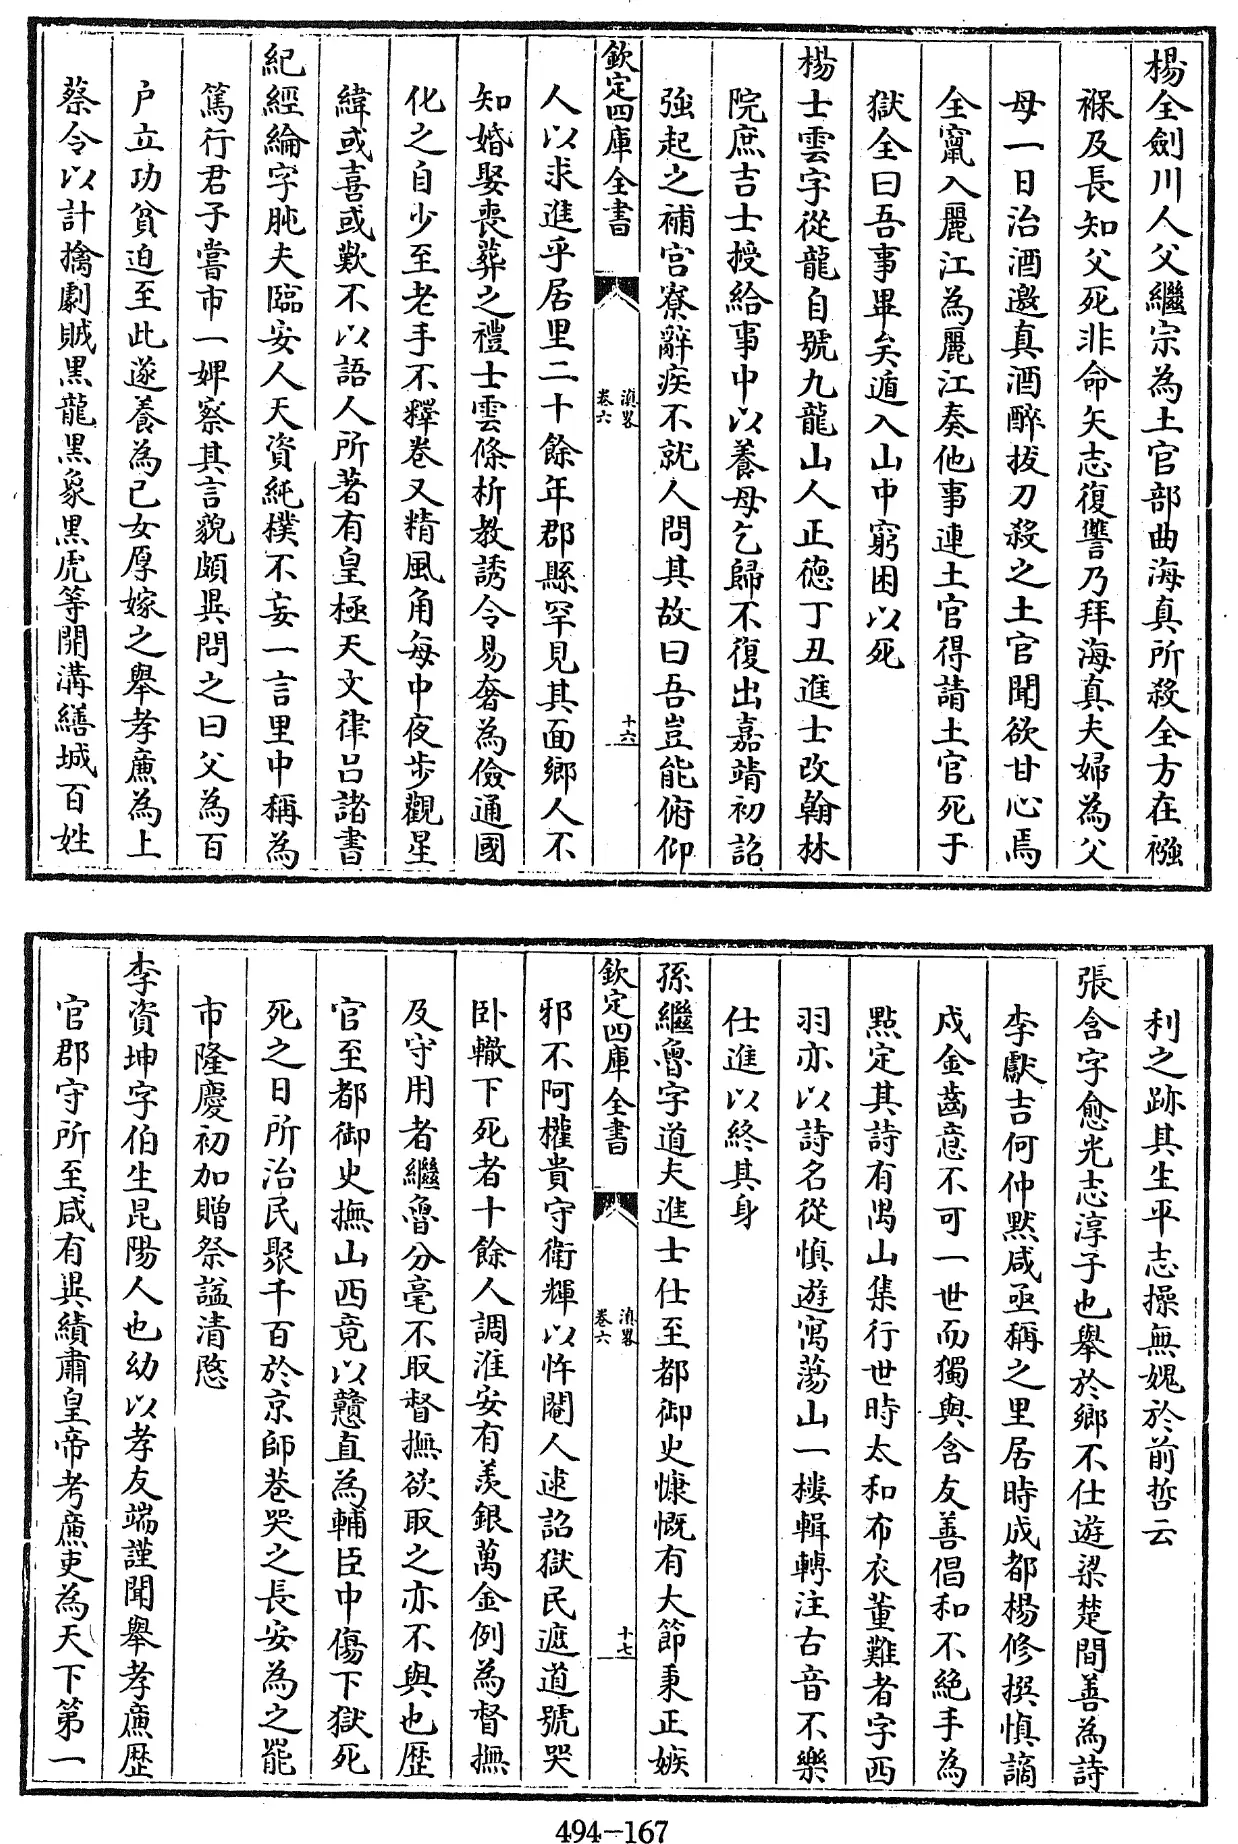 楊全劍川人父繼宗為土官部曲海真所殺全方在襁
褓及長知父死非命矢志復讐乃拜海真夫婦為父
母一日治酒邀真酒醉拔刀殺之土官聞欲甘心焉
全竄入麗江為麗江奏他事連土官得請土官死于
獄全曰吾事畢矣遁入山中窮困以死
楊士雲字從龍自號九龍山人正德丁丑進士改翰林
院庶吉士授給事中以養母乞歸不復出嘉靖初詔
強起之補宮寮辭疾不就人問其故曰吾豈能俯仰
欽定四庫全書
滇畧
卷六
十六
人以求進乎居里二十餘年郡縣罕見其面鄉人不
知婚娶喪葬之禮士雲條析教誘令易奢為儉通國
化之自少至老手不釋卷又精風角每中夜步觀星
緯或喜或歎不以語人所著有皇極天文律呂諸書
紀經綸字肫夫臨安人天資純樸不妄一言里中稱為
篤行君子嘗市一婢察其言貌頗異問之曰父為百
户立功貧迫至此遂養為己女厚嫁之舉孝廉為上
蔡令以計擒劇賊黑龍黑象黑虎等開溝繕城百姓
利之跡其生平志操無媿於前哲云
張含字愈光志淳子也舉於鄉不仕遊梁楚間善為詩
李獻吉何仲默咸亟稱之里居時成都楊修撰慎謫
戍金齒意不可一世而獨與含友善倡和不絶手為
㸃定其詩有禺山集行世時太和布衣董難者字西
羽亦以詩名從慎遊寓蕩山一樓輯轉注古音不樂
仕進以終其身
孫繼魯字道夫進士仕至都御史慷慨有大節秉正嫉
欽定四庫全書
滇畧
卷六
十七
邪不阿權貴守衛輝以忤閹人逮詔獄民遮道號哭
卧轍下死者十餘人調淮安有羨銀萬金例為督撫
及守用者繼魯分毫不取督撫欲取之亦不與也歴
官至都御史撫山西竟以戇直為輔臣中傷下獄死
死之日所治民聚千百於京師巷哭之長安為之罷
市隆慶初加贈祭謚清愍
李資坤字伯生昆陽人也幼以孝友端謹聞舉孝廉歴
官郡守所至咸有異績肅皇帝考廉吏為天下第一
494-167